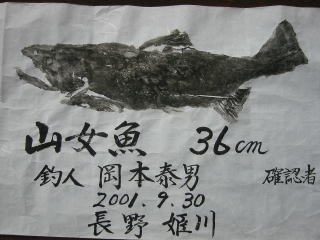 山女魚 36cm
釣人 岡本泰男 確認者
2001.9.30
長野 姫川